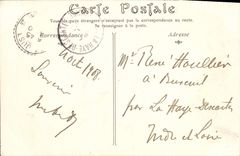 Carte Postale
Tous les pays étrangers n'acceptent pas la correspondance au recto.
Se renseigner à la poste.
Correspondance
Adresse
Août 1908
Souvenir
Mr René Houllier
à Buxeuil
par La Haye-Descartes
Indre et Loire